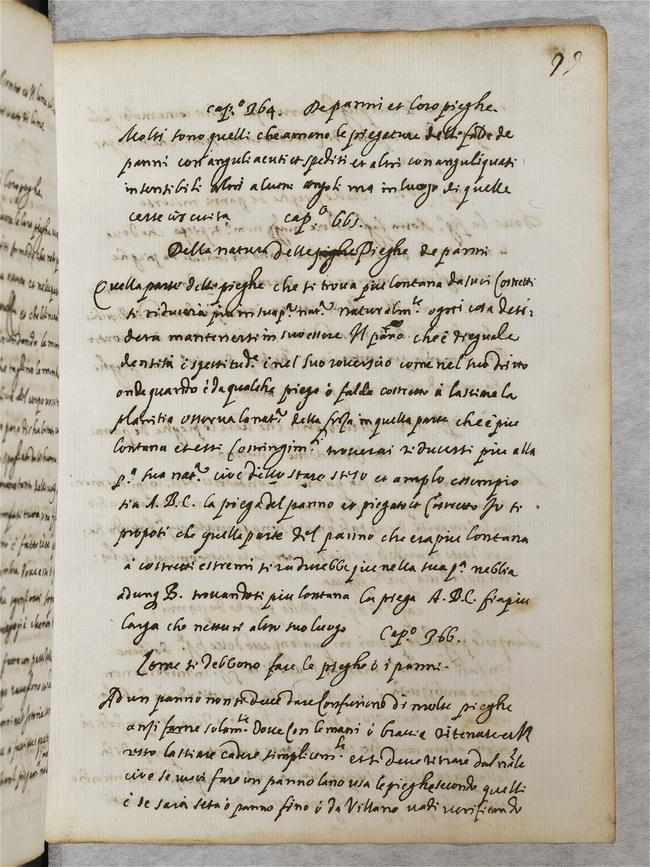 99
cap.º 364. De panni et loro pieghe.
Molti sono quelli che amano le piegature delle falde de
panni con anguli acuti et spediti et altri con anguli quasi
insensibili altri alcuni angoli ma in luogo di quelle
certe
cap.º 365.
Della natura delle Pieghe de panni
Quella parte delle pieghe che si trova piu lontana da suoi Costretti
si ridurerà piu in sua p.ª nat.ª naturalm.te ogni cosa desi-
dera mantenersi in suo essere. Il pano che è di eguale
densità e spessitud.e nel suo roverscio come nel suo dritto
onde quando è da qualche piega ò falda costretto à lasciare la
planitia osserva la nat.ª della forza in quella parte che è piu
lontana et essi Costringim.ti troverai ridursi piu alla
p.ª sua nat.ª cioe dello stare steso et amplo essempio
sia A.B.C. la piega del panno et piegato et Costretto Io ti
proposi che quella parte del panno che era piu lontana
à costretti estremi si riddurebbe piu nella sua p.ª
adunq B. trovandosi piu lontana la piega A.B.C. fia piu
larga che nessun altro suo luogo
Cap.º 366.
Come si debbono fare le pieghe à i panni.
Ad un panno non si deve dare Confusione di molte pieghe
ansi farne solam.te dove Con le mani ò braccia ritenute el
resto lasciare cadere simplicem.te et si deve ritrare dal nãle
cioe se vuoi fare un panno lano usa le pieghe secondo quelli
è se sarà seta ò panno fino ò da Villano vadi verificando